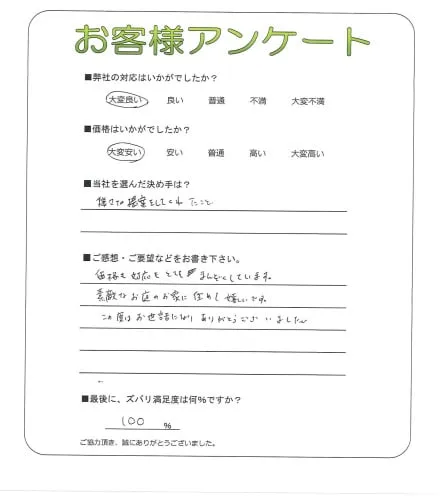 お客様アンケート
■弊社の対応はいかがでしたか？
大変良い 良い 普通 不満 大変不満
■価格はいかがでしたか？
大変安い 安い 普通 高い 大変高い
■当社を選んだ決め手は？
提案をしてくれたこと
■ご感想・ご要望などをお書き下さい。
価格も対応もとてもまんぞくしています。
素敵なお庭のお家に住めて嬉しいです。
この度はお世話になりありがとうございました
■最後に、ズバリ満足度は何％ですか？
100 %
ご協力頂き、誠にありがとうございました。